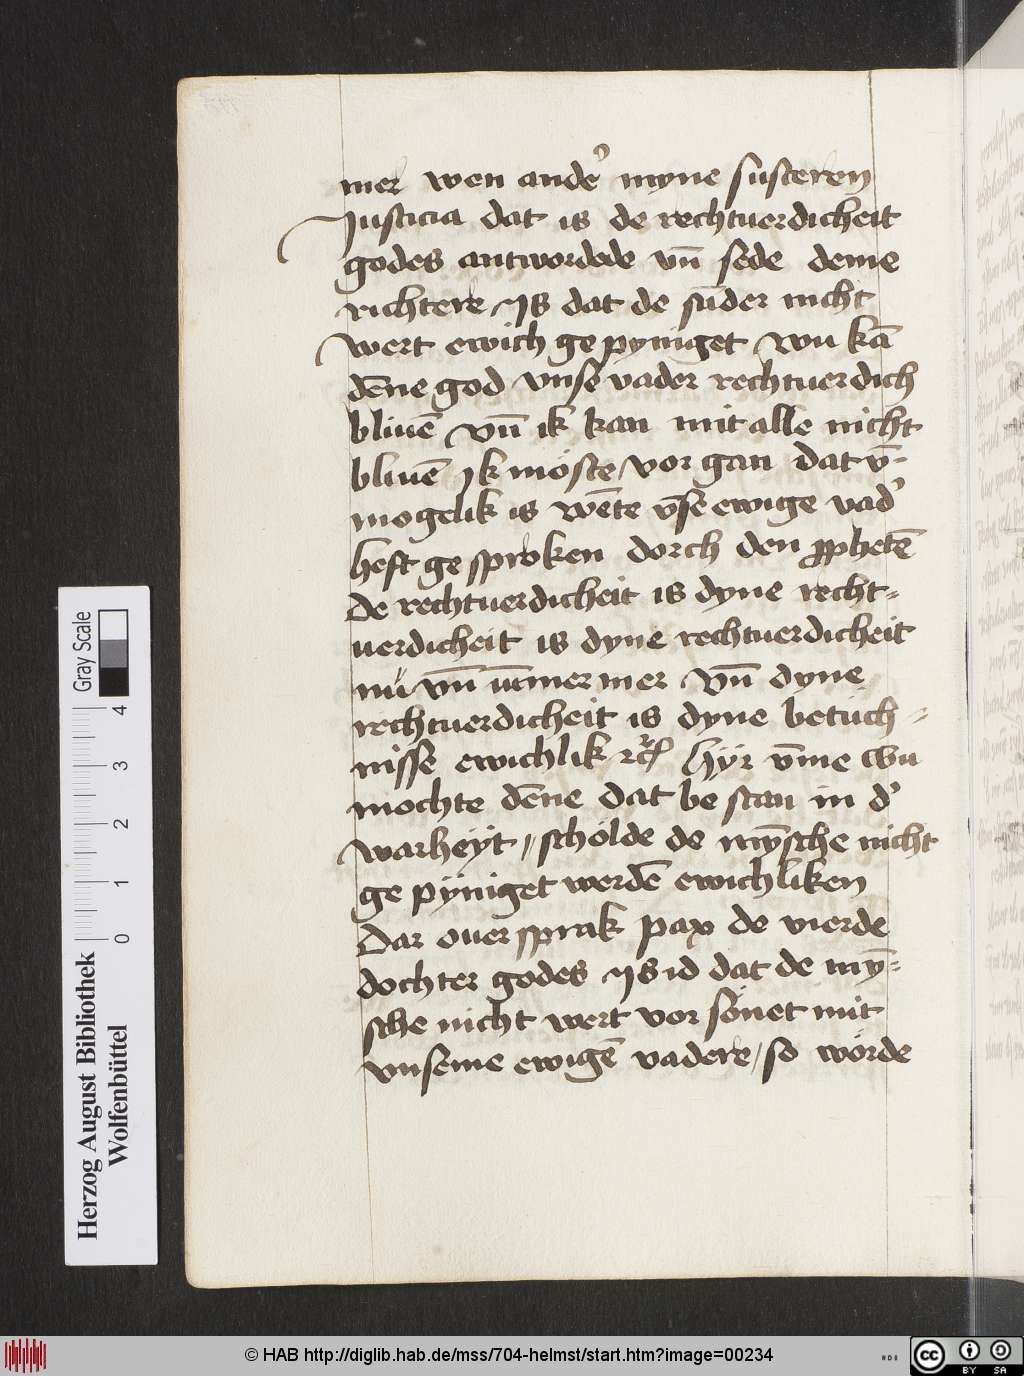 mer wen ander̉ myne susteren
Justicia dat is de rechtuerdicheit
godes antwordede vn̄ sede deme
richtere Is dat de sūder nicht
wert ewich ge pyniget wu kā
dēne god vnse vader rechtuerdich
bliuē vn̄ ik kan mit alle nicht
bliuē Ik möste vor gan dat v̄-
mogelik is wēte v̄se ewige vad̉
heft ge sproken dorch den ꝓphetē
De rechtuerdicheit is dyne recht-
uerdicheit is dyne rechtuerdicheit
nů vn̄ ūmer mer vn̄ dyne
rechtuerdicheit is dyne betuch-
nisse ewichlik ꝛcꝭ hyr v̄me wu
mochte dēne dat be stan in d̉
warheyt // schölde de mȳsche nicht
ge pyniget werdē ewichliken
Dar ouer sprak pax de vierde
dochter godes Is id dat de mȳ-
sche nicht wert vor sönet mit
vnseme ewigē vadere / so wörde
Herzog August Bibliothek
Wolfenbüttel
0 1 2 3 4
Gray Scale
© HAB http://diglib.hab.de/mss/704-helmst/start.htm?image=00234
cc BY SA